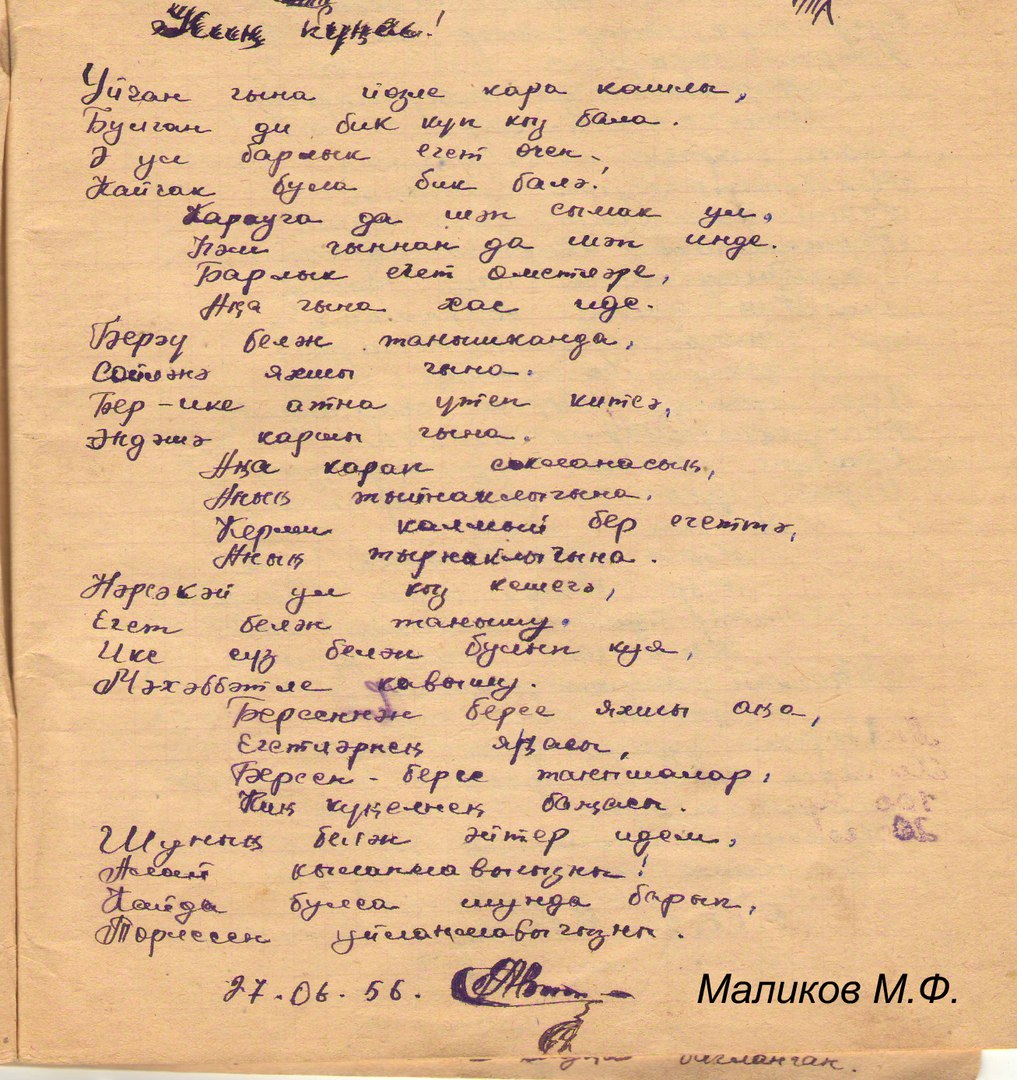 Киң күңел!
Уйчан гына йөзле кара кашлы,
Булган ди бик күп кыз бала.
Ә ул барлык егет өчен
Кайчак була бик бәлә!
Карауга да шәп сымак ул,
Һәм чыннан да шәп инде.
Барлык егет өметләре,
Аңа гына хас иде.
Берәү белән танышканда,
Сөйләнә яхшы гына.
Бер-ике атна үтеп китсә,
Эндәшә каршы гына.
Аңа карап сокланасың,
Аның җыйнаклыгына.
Керми калмый бер егеттә,
Аның тырнаклыгына.
Нәрсәкәй ул кыз кешегә,
Егет белән танышу.
Ике сүз белән булып куя,
Мәхәббәтле кавышу.
Берсеннән берсе яхшы аңа,
Егетләрнең яңасы,
Берсен-берсе танышалар,
Киң күңелнең бәһасы.
Шуның белән әйтер идем,
Алай кыланмавыгызны!
Кайда булса шунда барып,
Төрлесен уйланмавыгызны.
27.06.56.
Маликов М.Ф.